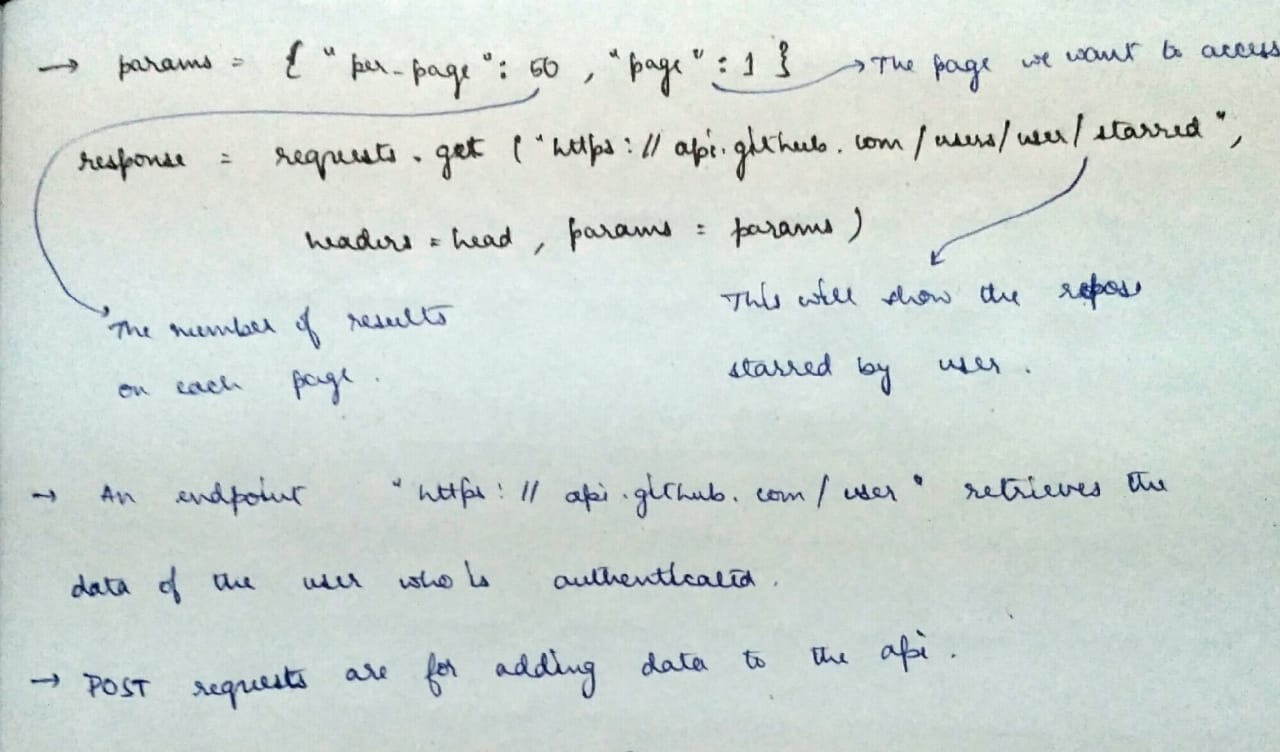 → params = { "per_page": 50 , "page": 1 } → The page we want to access
response = requests.get ("https://api.github.com/users/user/starred",
headers = head , params = params )
The number of results
on each page.
This will show the repos
starred by user.
→ An endpoint "https://api.github.com/user" retrieves the
data of the user who is authenticated.
→ POST requests are for adding data to the api.